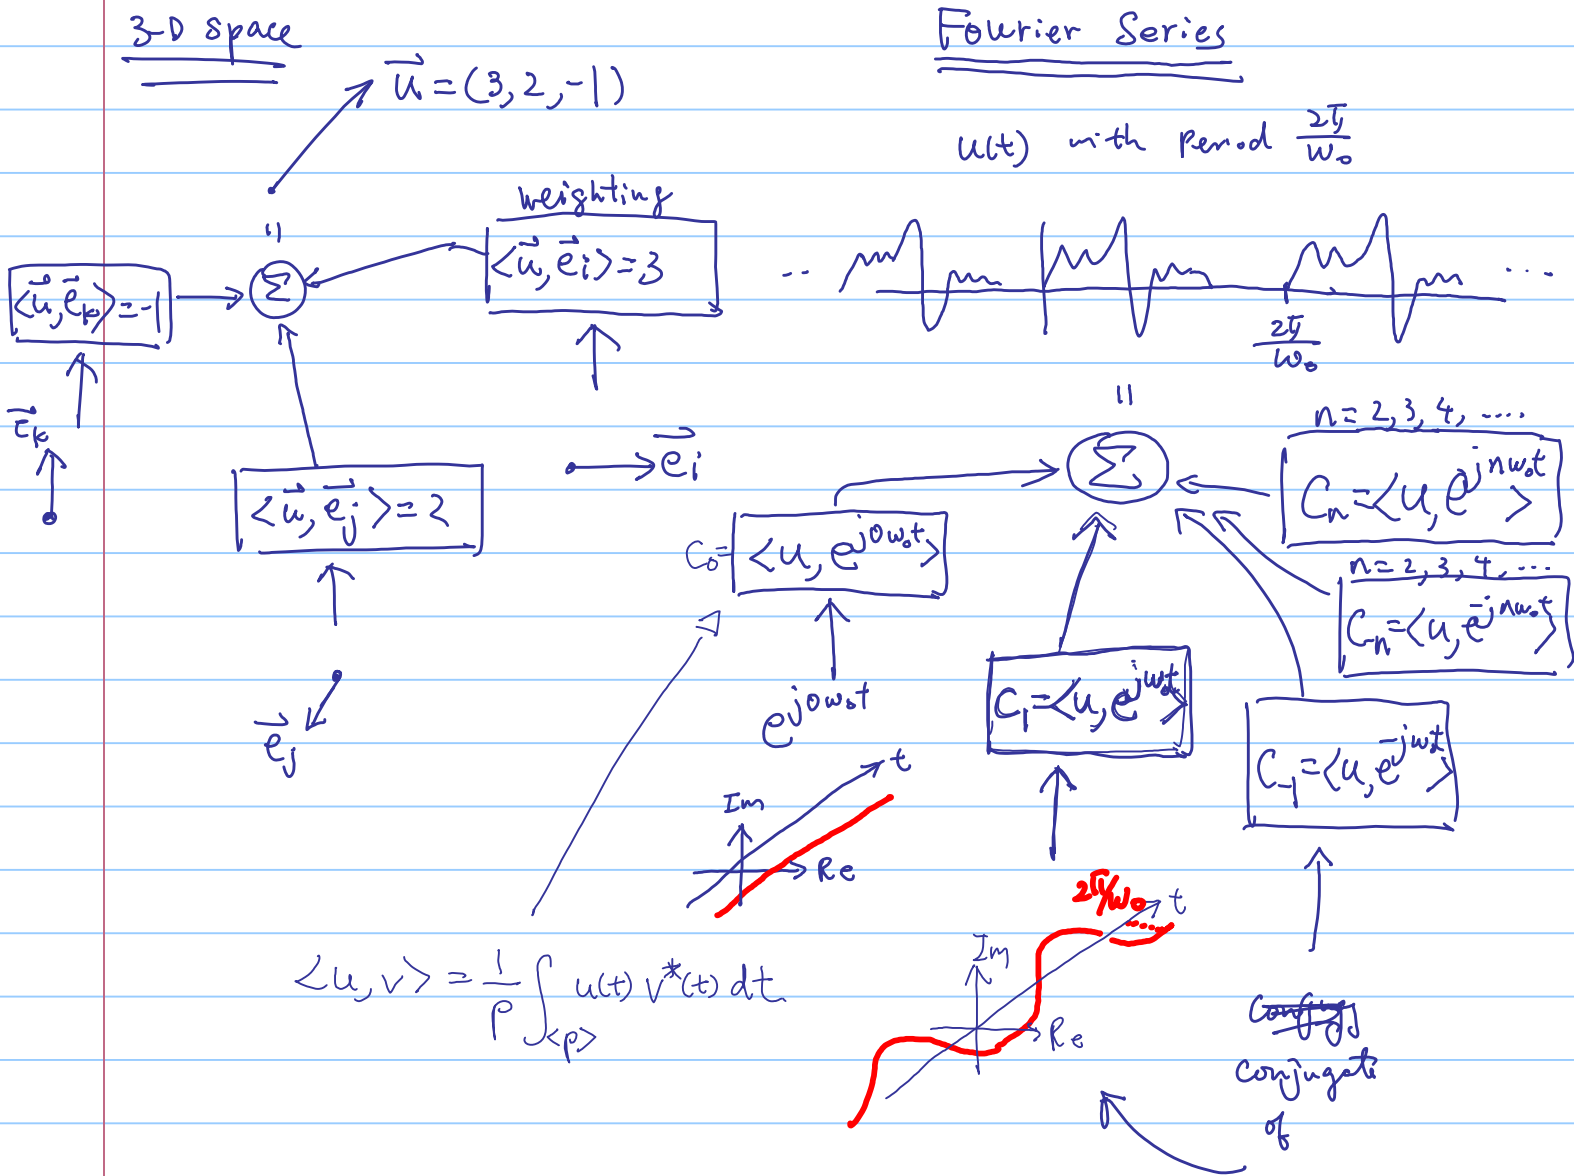 3-D space
u⃗ = (3, 2, -1)
weighting
<u⃗, e⃗i> = 3
<u⃗, e⃗k> = -1
e⃗k
<u⃗, e⃗j> = 2
e⃗i
e⃗j
Σ
=
Fourier Series
u(t) with period 2π/ω₀
... ...
2π/ω₀
=
Σ
n = 2, 3, 4, ....
Cn = <u, e^{jnω₀t}>
n = 2, 3, 4, ...
C-n = <u, e^{-jnω₀t}>
C₀ = <u, e^{j0ω₀t}>
e^{j0ω₀t}
C₁ = <u, e^{jω₀t}>
C-₁ = <u, e^{-jω₀t}>
Im
t
Re
2π/ω₀
t
Im
Re
<u, v> = 1/P ∫<P> u(t) v*(t) dt
conjugate
of